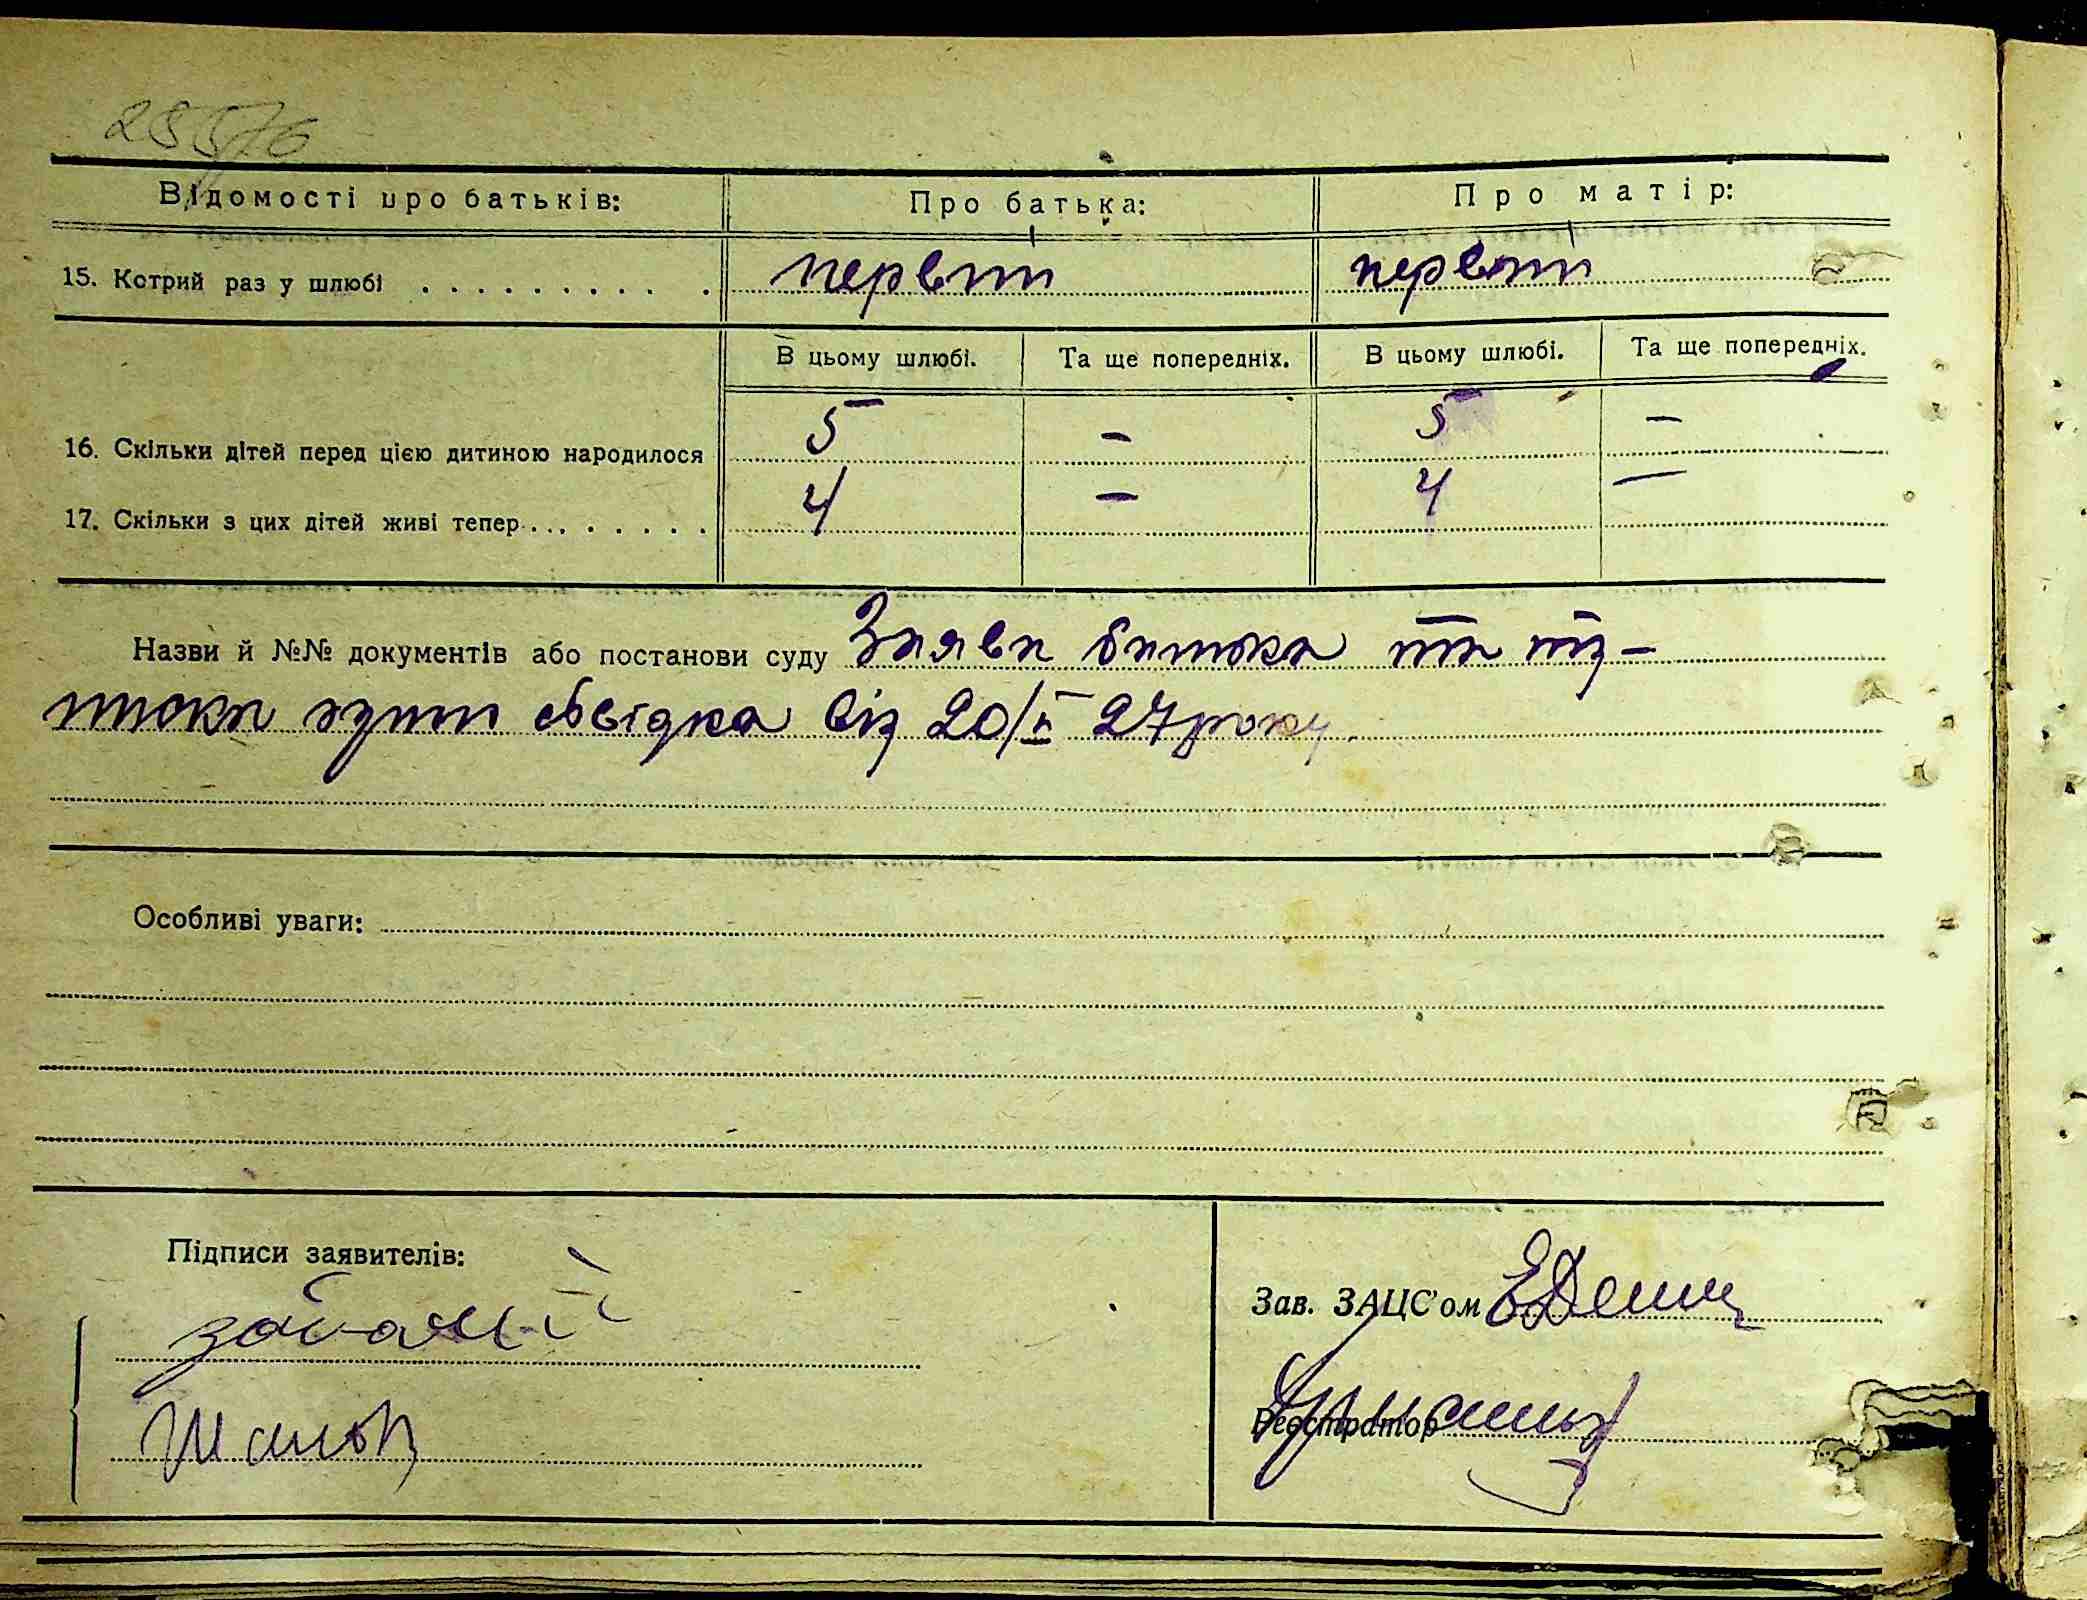 28576
Відомості про батьків: Про батька: Про матір:
15. Котрий раз у шлюбі . . . . . . . . . . первий первий
В цьому шлюбі. Та ще попередніх. В цьому шлюбі. Та ще попередніх.
16. Скільки дітей перед цією дитиною народилося 5 – 5 –
17. Скільки з цих дітей живі тепер . . . . . . . . . 4 – 4 –
Назви й №№ документів або постанови суду Заява батька та
свідка від 20/ 27 року.
Особливі уваги:
Підписи заявителів:
Зав. ЗАЦС'ом
Реєстратор